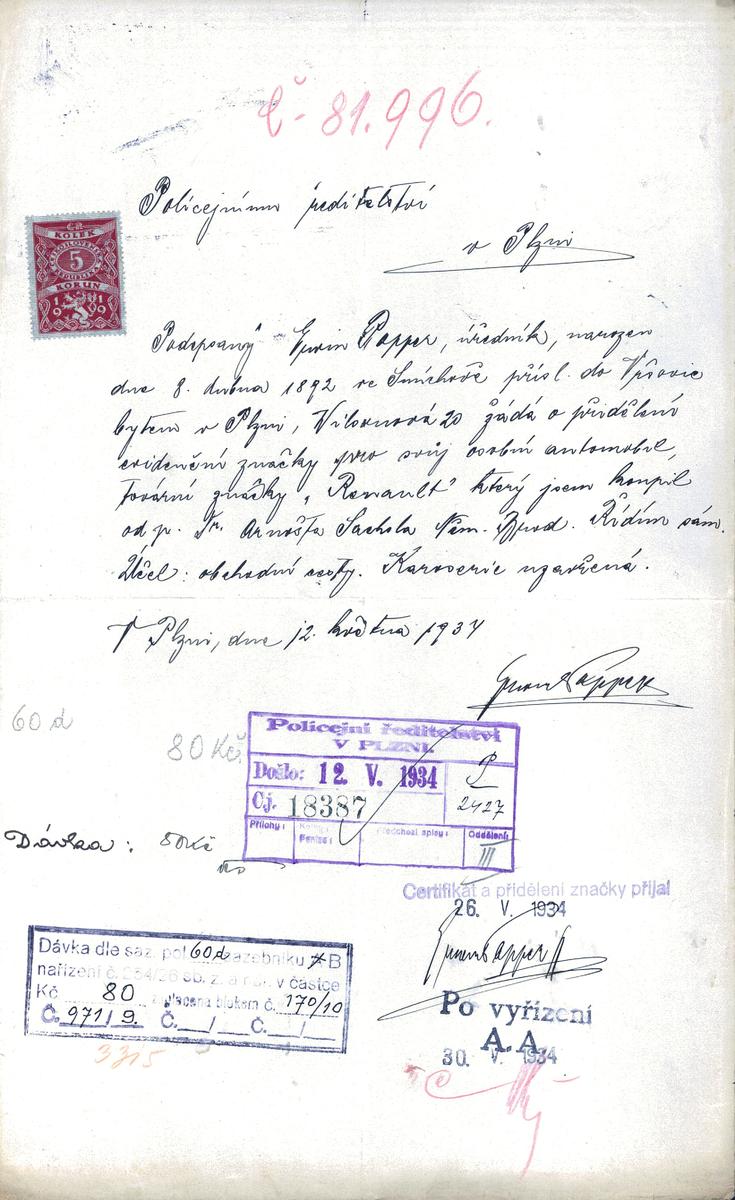 č-81.996.
Policejnímu ředitelství
v Plzni
KOLEK
5
KORUN
1919
Podepsaný Erwin Popper, úředník, narozen
dne 8. dubna 1892 ve Smíchově přísl. do Vršovic
bytem v Plzni, Vilsonová 20 žádá o přidělení
evidenční značky pro svůj osobní automobil,
tovární značky „Renault" který jsem koupil
od p. Dr. Arnošta Sachsla Něm. Brod. Řídím sám.
Účel: obchodní cesty. Karoserie uzavřená.
V Plzni, dne 12. května 1934
Erwin Popper
60 d
80 Kč
Policejní ředitelství
V PLZNI.
Došlo: 12. V. 1934
Čj. 18387
P
2427
Přílohy:
Předchozí spisy:
Oddělení:
III
Dávka: 80Kč
Certifikát a přidělení značky přijal
26. V. 1934
Erwin Popper
Dávka dle saz. pol 60d sazebníku A B
nařízení č. 254/26 sb. z. a nař. v částce
Kč 80 zaplacena blokem č. 170/10
Č. 971/9. Č. / Č. /
3315
Po vyřízení
A. A.
30. V. 1934